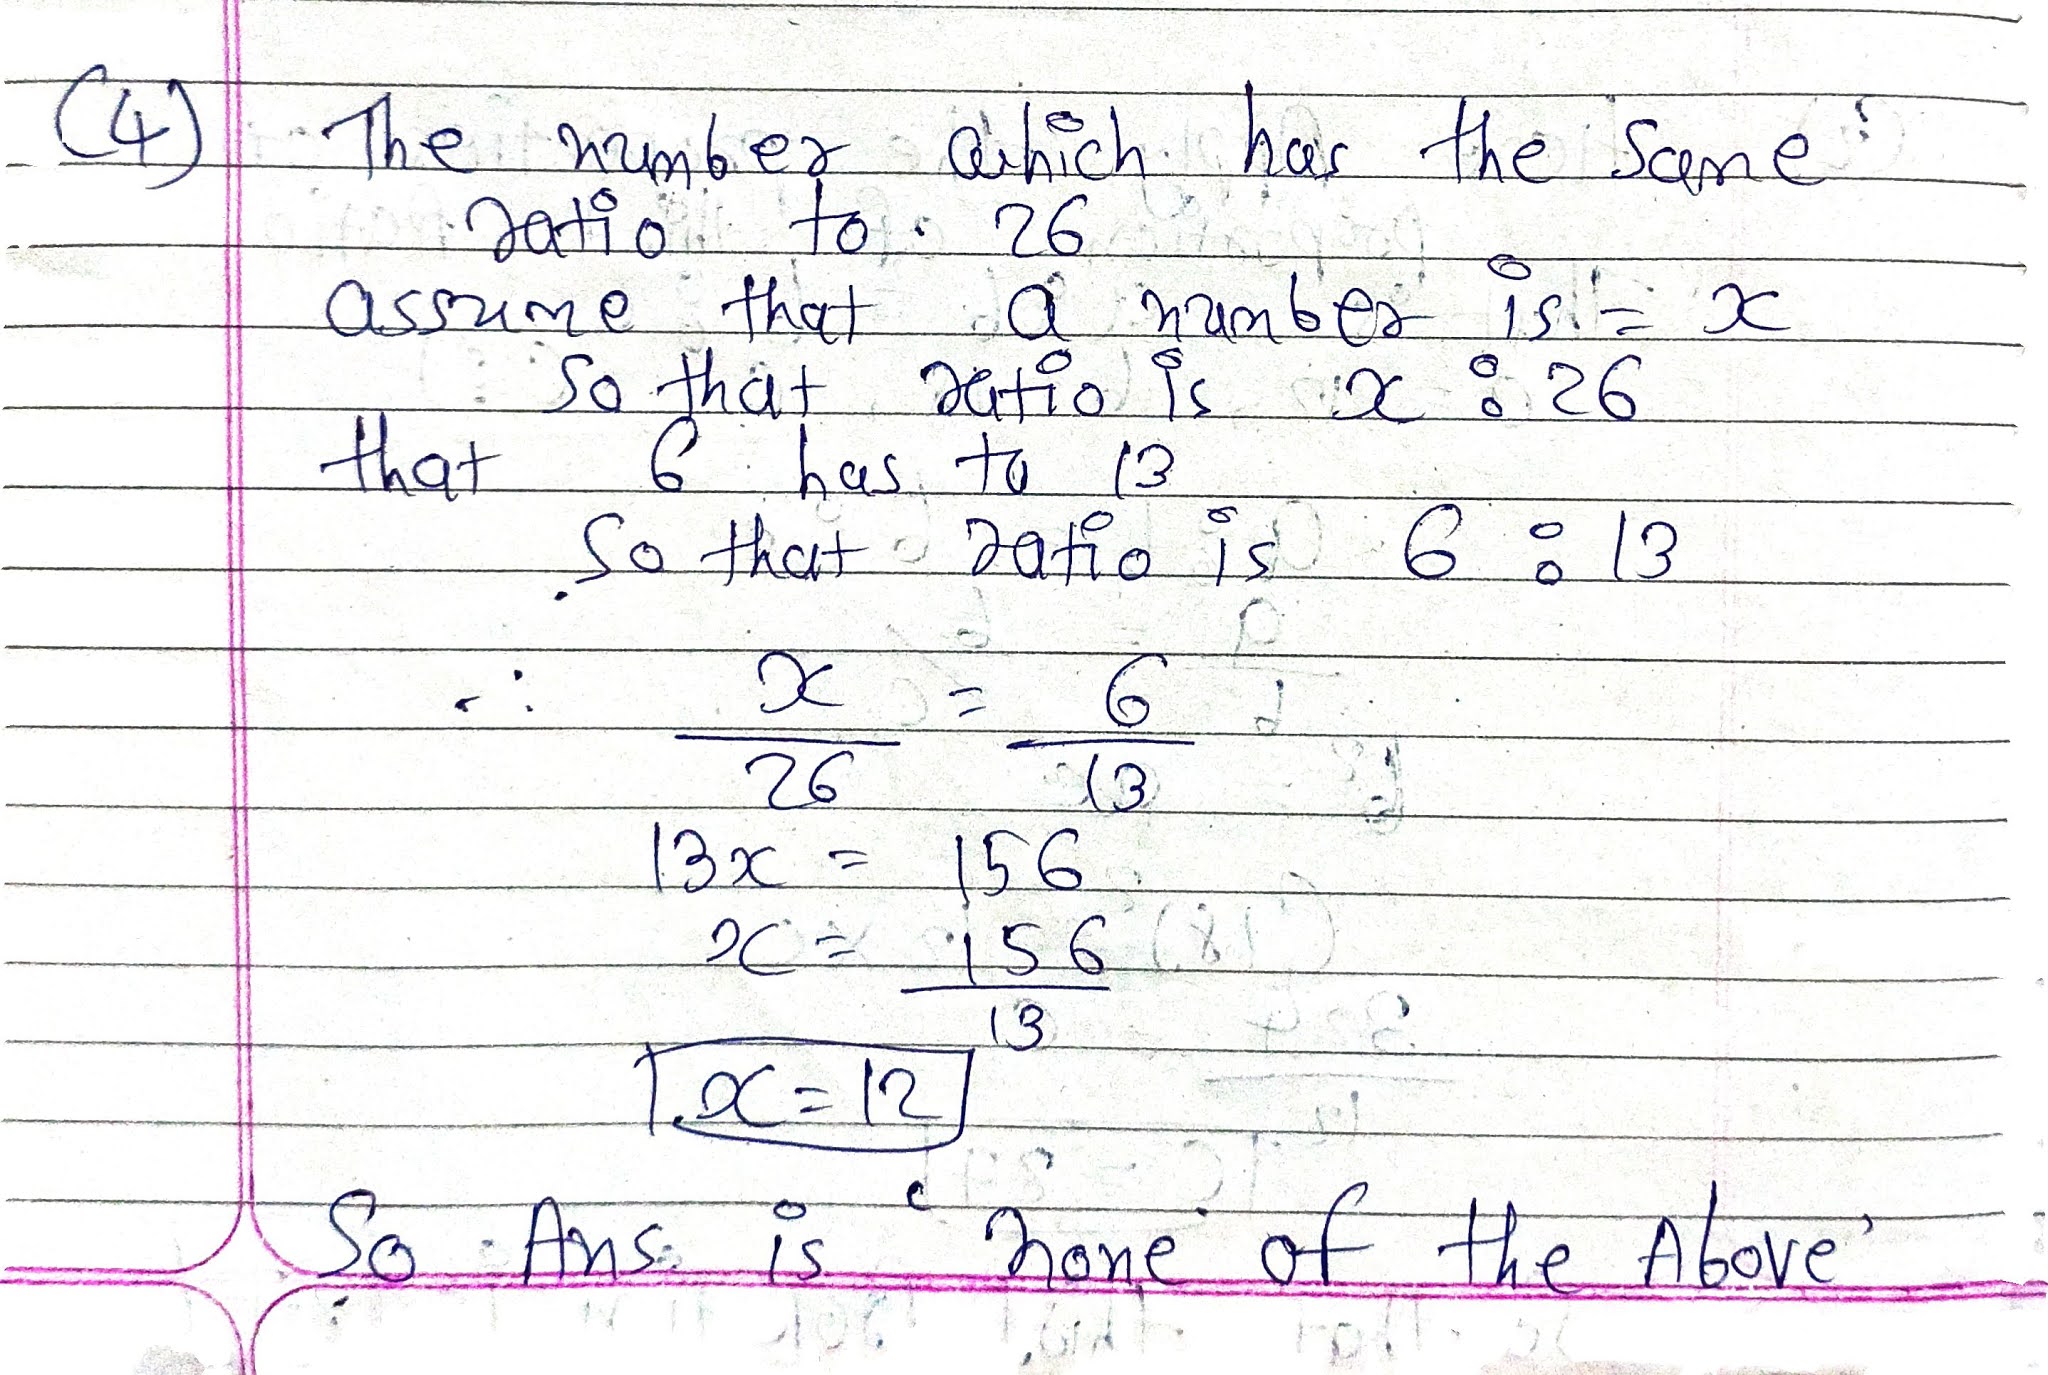 (4) The number which has the same
ratio to 26
assume that a number is = x
So that ratio is x : 26
that 6 has to 13
So that ratio is 6 : 13
∴ x/26 = 6/13
13x = 156
x = 156/13
x = 12
So Ans is 'none of the Above'